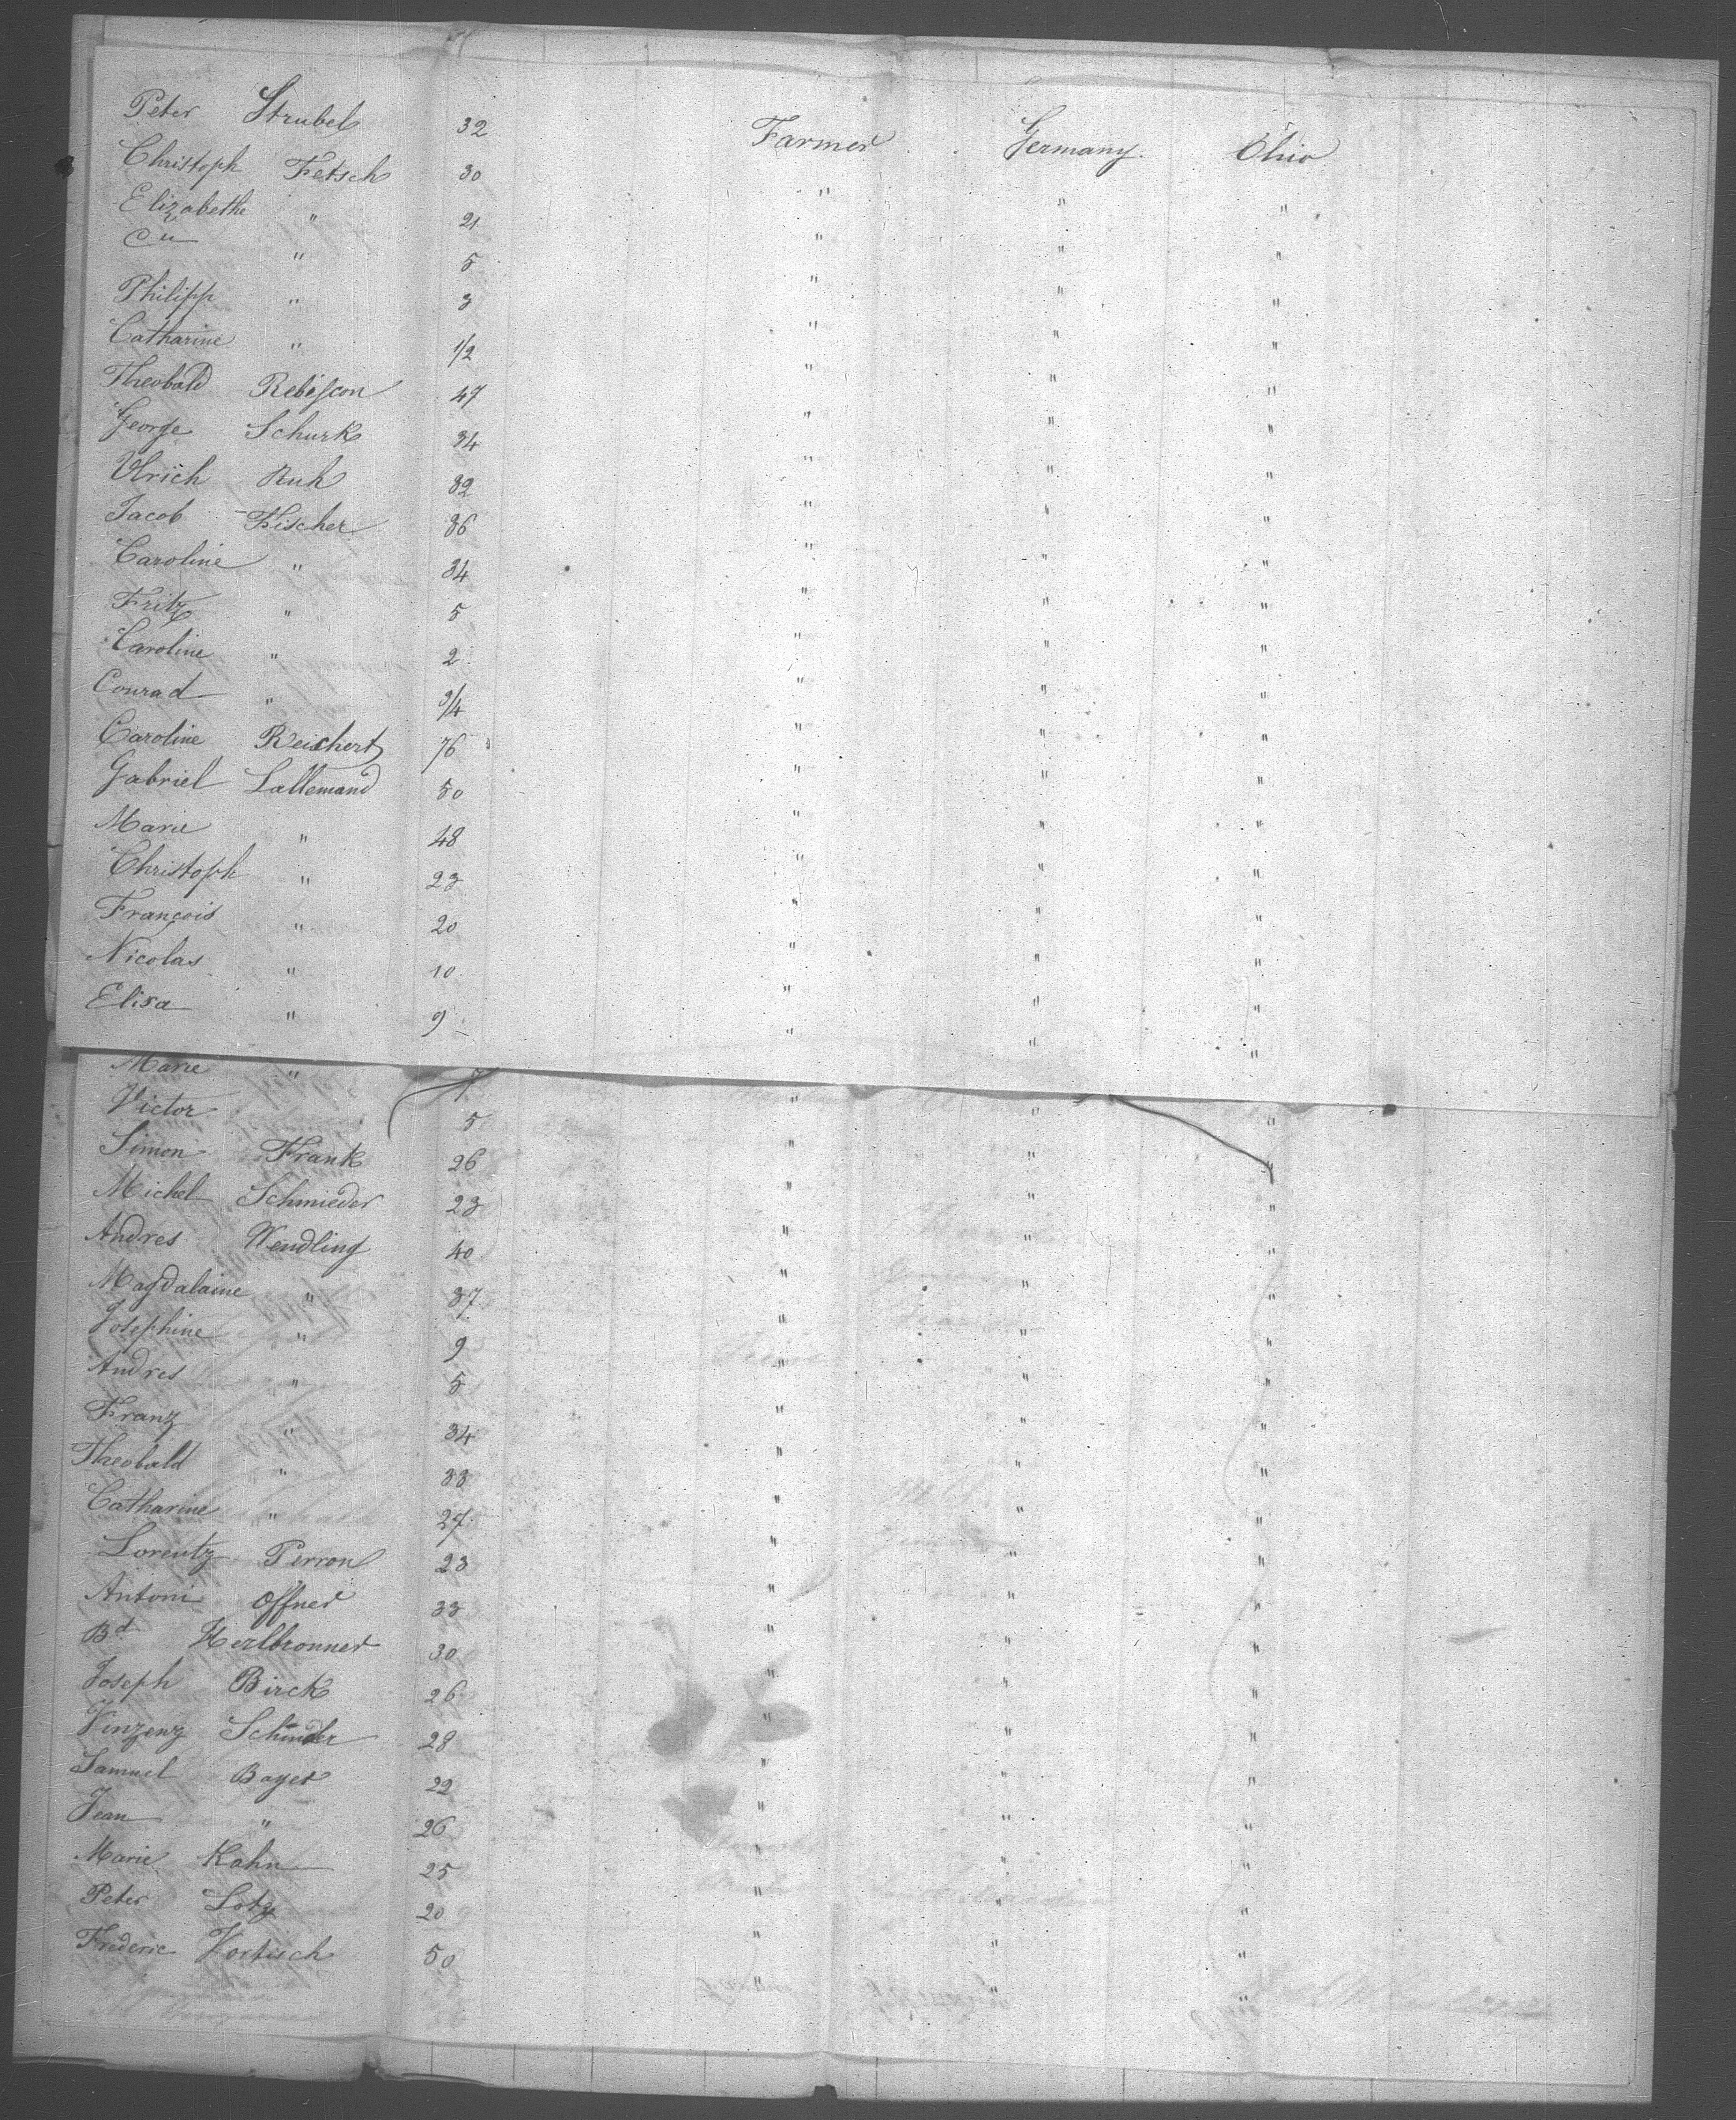 Peter Strubel 32 Farmer Germany. Ohio
Christoph Fetsch 30 " " "
Elizabethe " 21 " " "
" 5 " " "
Philipp " 3 " " "
Catharine " 1/2 " " "
Theobald 47 " " "
George Schurk 34 " " "
Ulrich Ruh 32 " " "
Jacob Fischer 36 " " "
Caroline " 34 " " "
Fritz " 5 " " "
Caroline " 2 " " "
Conrad " 3/4 " " "
Caroline Reichert 76 " " "
Gabriel Lallemand 50 " " "
Marie " 48 " " "
Christoph " 23 " " "
François " 20 " " "
Nicolas " 10 " " "
Elisa " 9 " " "
Marie " " " "
Victor 5 " " "
Simon Frank 26 " " "
Michel Schmieder 23 " " "
Andres Wendling 40 " " "
Magdalaine " 37 " " "
Josephine " 9 " " "
Andres " 5 " " "
Franz " 34 " " "
Theobald " 33 " " "
Catharine " 27 " " "
Lorentz Perron 23 " " "
Antoni Offner 33 " " "
Bd 30 " " "
Joseph Birck 26 " " "
Vinzenz 28 " " "
Samuel Bayer 22 " " "
Jean " 26 " " "
Marie Kahn 25 " " "
Peter Lotz 20 " " "
Frederic Vortisch 50 " " "